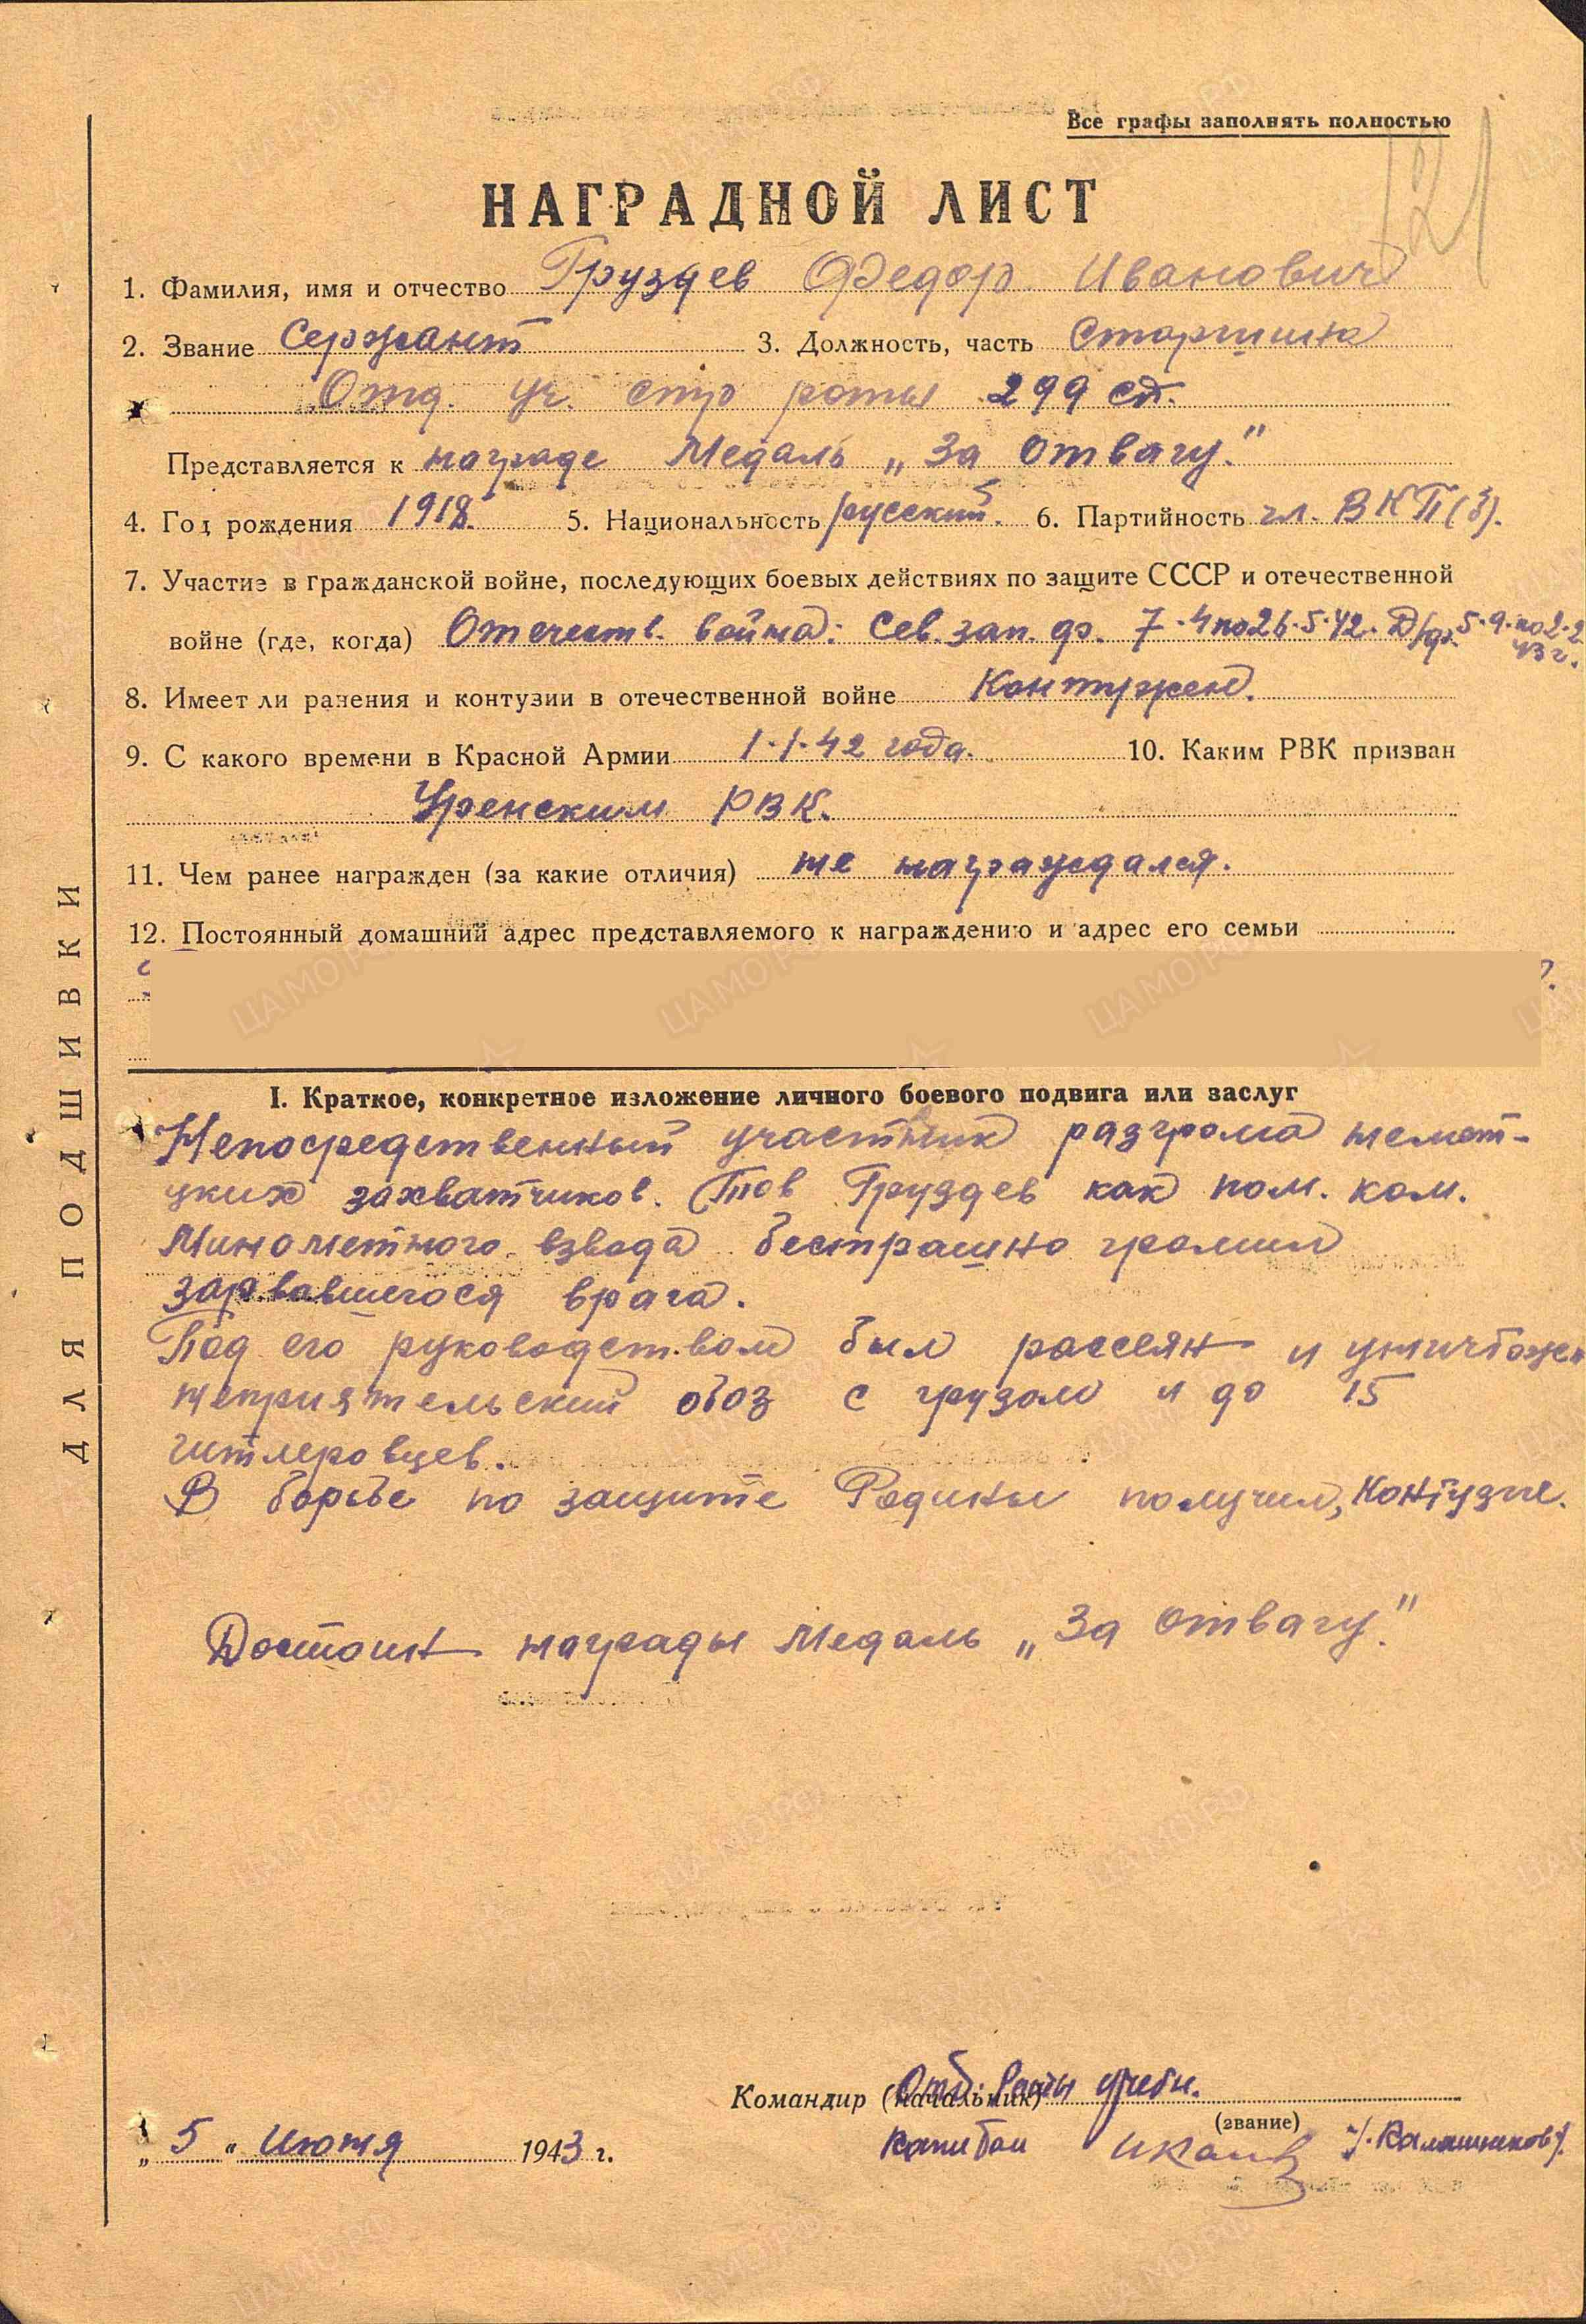 Все графы заполнять полностью
121
НАГРАДНОЙ ЛИСТ
1. Фамилия, имя и отчество Груздев Федор Иванович
2. Звание Сержант 3. Должность, часть Старшина
Отд. уч. стр роты 299 сд.
Представляется к награде Медаль „За отвагу."
4. Год рождения 1918. 5. Национальность русский. 6. Партийность чл. ВКП(б).
7. Участие в гражданской войне, последующих боевых действиях по защите СССР и отечественной
войне (где, когда) Отечеств. война: Сев. зап. фр. 7.4 по 26.5.42. Д/фр. 5.9. по 2.2
43 г.
8. Имеет ли ранения и контузии в отечественной войне Контужен.
9. С какого времени в Красной Армии 1.1.42 года. 10. Каким РВК призван
Уренским РВК.
11. Чем ранее награжден (за какие отличия) не награждался.
12. Постоянный домашний адрес представляемого к награждению и адрес его семьи
I. Краткое, конкретное изложение личного боевого подвига или заслуг
Непосредственный участник разгрома немет-
цких захватчиков. Тов Груздев как пом. ком.
Минометного взвода бестрашно громил
зарвавшегося врага.
Под его руководством был рассеян и уничтожен
неприятельский обоз с грузом и до 15
гитлеровцев.
В борьбе по защите Родины получил, контузие.
Достоин награды Медаль „За отвагу."
Командир (начальник) Отд. Роты учебн.
(звание)
„5" Июня 1943 г.
Капитан /.Калашников/.
ДЛЯ ПОДШИВКИ
ЦАМО РФ